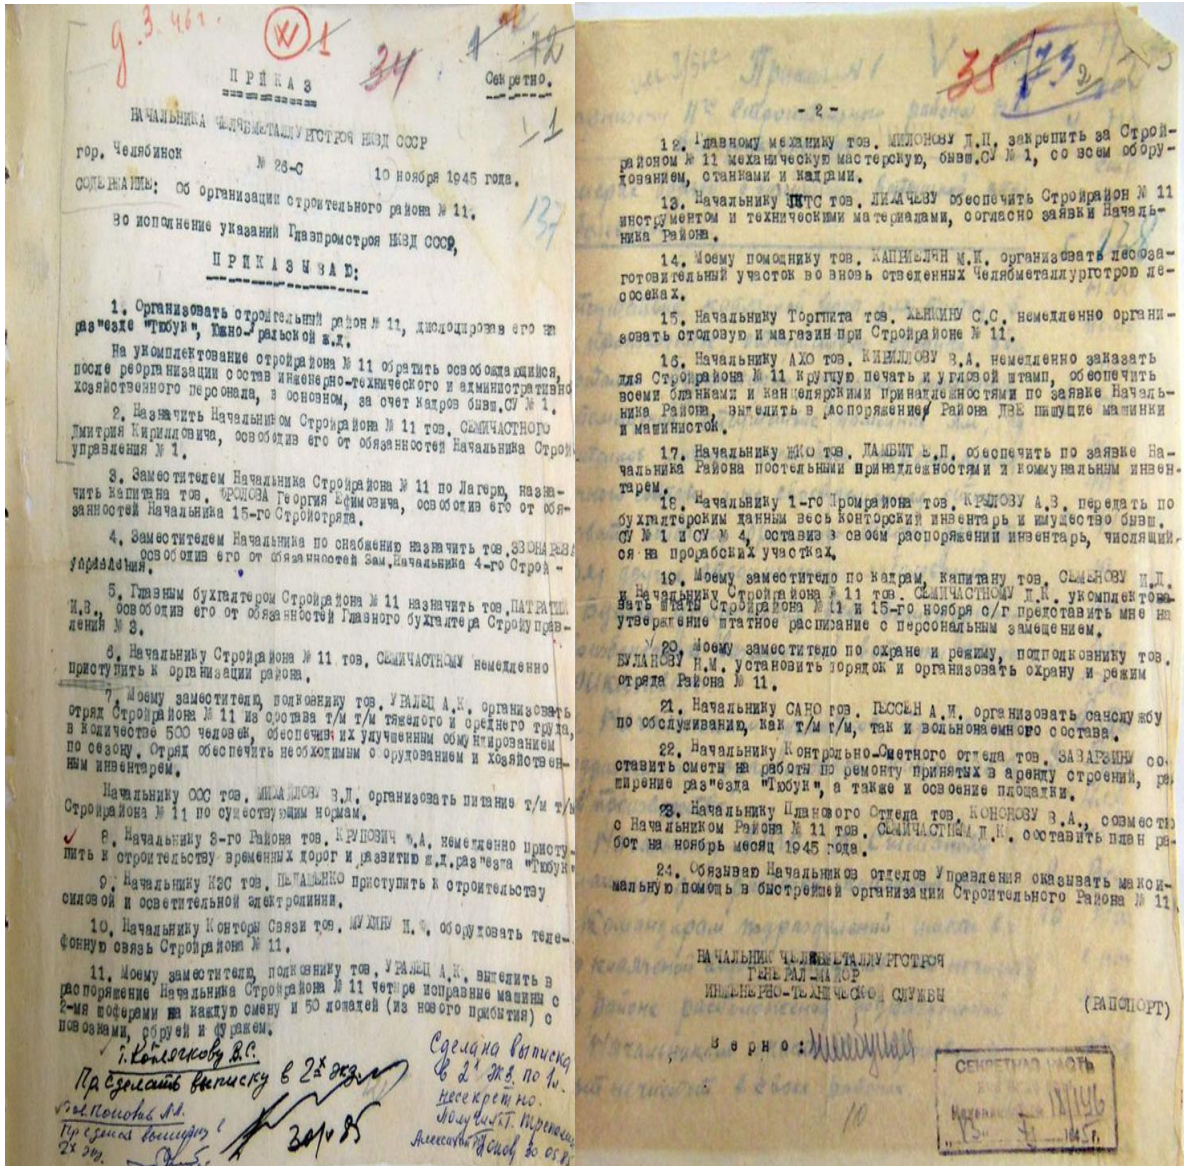 д.з. 46г.
1
34
72
Секретно.
ПРИКАЗ
НАЧАЛЬНИКА ЧЕЛЯБМЕТАЛЛУРГСТРОЯ НКВД СССР
№ 26-С
гор. Челябинск
10 ноября 1945 года.
СОДЕРЖАНИЕ: Об организации строительного района № 11.
137
Во исполнение указаний Главпромстроя НКВД СССР,
ПРИКАЗЫВАЮ:
1. Организовать строительный район № 11, дислоцировав его на
раз"езде "Тюбук", Южно-Уральской ж.д.
На укомплектование стройрайона № 11 обратить освобождающийся,
после реорганизации состав инженерно-технического и административно
хозяйственного персонала, в основном, за счет кадров бывш.СУ № 1.
2. Назначить Начальником Стройрайона № 11 тов. СЕМИЧАСТНОГО
Дмитрия Кирилловича, освободив его от обязанностей Начальника Строй
управления № 1.
3. Заместителем Начальника Стройрайона № 11 по Лагерю, назна-
чить капитана тов. ФРОЛОВА Георгия Ефимовича, освободив его от обя-
занностей Начальника 15-го Стройотряда.
4. Заместителем Начальника по снабжению назначить тов.ЗВОНАРЕВА
освободив его от обязанностей Зам.Начальника 4-го Строй-
управления.
5. Главным бухгалтером Стройрайона № 11 назначить тов.
И.В., освободив его от обязанностей Главного бухгалтера Стройуправ-
ления № 3.
6. Начальнику Стройрайона № 11 тов. СЕМИЧАСТНОМУ немедленно
приступить к организации района.
7. Моему заместителю, полковнику тов. УРАЛЕЦ А.К. организовать
отряд Стройрайона № 11 из состава т/м т/м тяжелого и среднего труда,
в количестве 500 человек, обеспечив их улучшенным обмундированием
по сезону. Отряд обеспечить необходимым оборудованием и хозяйствен-
ным инвентарем.
Начальнику ООС тов. МИХАЙЛОВУ В.Д. организовать питание т/м т/м
Стройрайона № 11 по существующим нормам.
8. Начальнику 3-го Района тов. КРУПОВИЧ Ф.А. немедленно присту-
пить к строительству временных дорог и развитию ж.д.раз"езда "Тюбук"
9. Начальнику КЭС тов. приступить к строительству
силовой и осветительной электролинии.
10. Начальнику Конторы Связи тов. МУХИНУ Н.Ф. оборудовать теле-
фонную связь Стройрайона № 11.
11. Моему заместителю, полковнику тов. УРАЛЕЦ А.К. выделить в
распоряжение Начальника Стройрайона № 11 четыре исправные машины с
2-мя шоферами на каждую смену и 50 лошадей (из нового прибытия) с
повозками, сбруей и фуражем.
т. Котлечкову В.С.
Пр. Сделать выписку в 2х экз.
Сделана выписка
в 2х экз. по 1л.
несекретно.
30/V 85
30.05.85
35
73
2
- 2 -
12. Главному механику тов. МИЛОНОВУ Д.П. закрепить за Строй-
районом № 11 механическую мастерскую, бывш.СУ № 1, со всем обору-
дованием, станками и кадрами.
13. Начальнику тов. ЛИХАЧЕВУ обеспечить Стройрайон № 11
инструментом и техническими материалами, согласно заявки Началь-
ника Района.
138
14. Моему помощнику тов. КАПРИЕЛЯН М.И. организовать лесоза-
готовительный участок во вновь отведенных Челябметаллургстрою ле-
сосеках.
15. Начальнику Торгпита тов. ХЕНКИНУ С.С. немедленно органи-
зовать столовую и магазин при Стройрайоне № 11.
16. Начальнику АХО тов. КИРИЛЛОВУ В.А. немедленно заказать
для Стройрайона № 11 круглую печать и угловой штамп, обеспечить
всеми бланками и канцелярскими принадлежностями по заявке Началь-
ника Района, выделить в распоряжение Района ДВЕ пишущие машинки
и машинисток.
17. Начальнику ЖКО тов. ДАМБИТ Е.П. обеспечить по заявке На-
чальника Района постельными принадлежностями и коммунальным инвен-
тарем.
18. Начальнику 1-го Промрайона тов. КРЫЛОВУ А.В. передать по
бухгалтерским данным весь конторский инвентарь и имущество бывш.
СУ № 1 и СУ № 4, оставив в своем распоряжении инвентарь, числящий-
ся на прорабских участках.
19. Моему заместителю по кадрам, капитану тов. СЕМЕНОВУ И.Д.
и Начальнику Стройрайона № 11 тов. СЕМИЧАСТНОМУ Д.К. укомплектова-
вать штаты Стройрайона № 11 и 15-го ноября с/г представить мне на
утверждение штатное расписание с персональным замещением.
20. Моему заместителю по охране и режиму, подполковнику тов.
БУЛАНОВУ Н.М. установить порядок и организовать охрану и режим
отряда Района № 11.
21. Начальнику САНО тов. ГЕССЕН А.И. организовать санслужбу
по обслуживанию, как т/м т/м, так и вольнонаемного состава.
22. Начальнику Контрольно-Сметного отдела тов. ЗАВАРЗИНУ со-
ставить сметы на работы по ремонту принятых в аренду строений, ра
ширение раз"езда "Тюбук", а также и освоение площадки.
23. Начальнику Планового Отдела тов. КОНОНОВУ В.А., совместно
с Начальником Района № 11 тов. СЕМИЧАСТНЫМ Д.К. составить план ра-
бот на ноябрь месяц 1945 года.
24. Обязываю Начальников отделов Управления оказывать макси-
мальную помощь в быстрейшей организации Строительного Района № 11
НАЧАЛЬНИК ЧЕЛЯБМЕТАЛЛУРГСТРОЯ
ГЕНЕРАЛ-МАЙОР
ИНЖЕНЕРНО-ТЕХНИЧЕСКОЙ СЛУЖБЫ
(РАПОПОРТ)
Верно:
СЕКРЕТНАЯ ЧАСТЬ
10